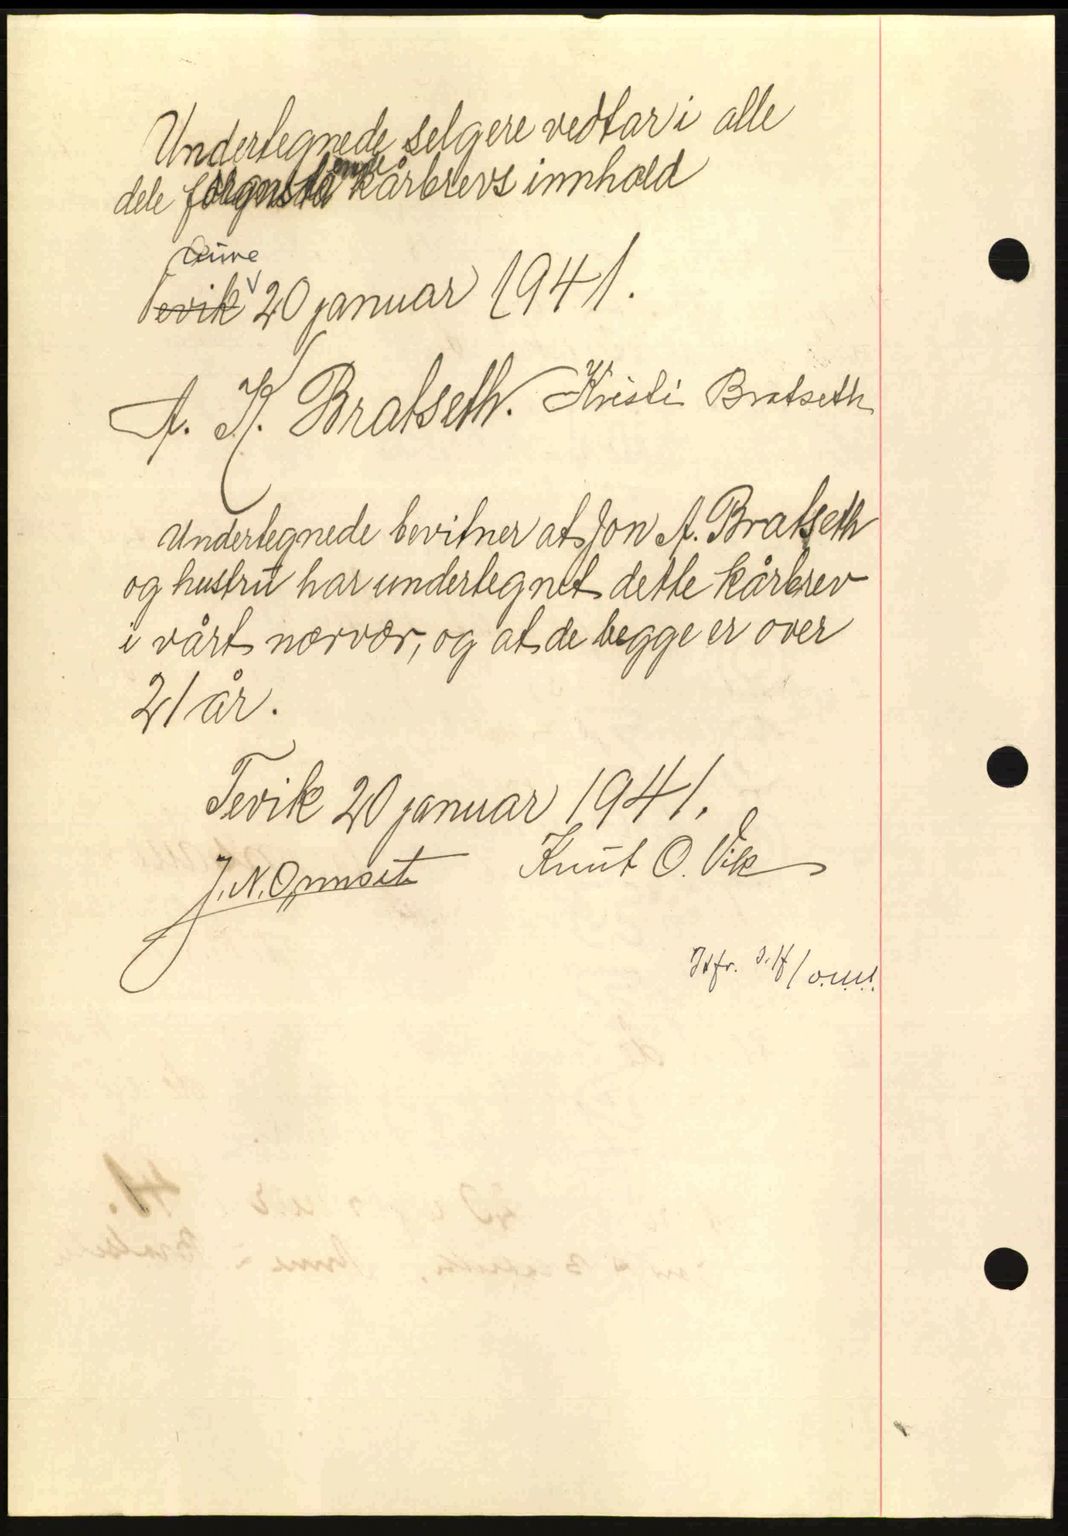 Undertegnede selgere vedtar i alle
dele kårbrevs innhold
Aure
Tevik 20 januar 1941.
A. K. Bratseth. Kristi Bratseth
Undertegnede bevitner at Jon A. Bratseth
og hustru har undertegnet dette kårbrev
i vårt nærvær, og at de begge er over
21 år.
Tevik 20 januar 1941.
J. N. Opmset Knut O. Vik